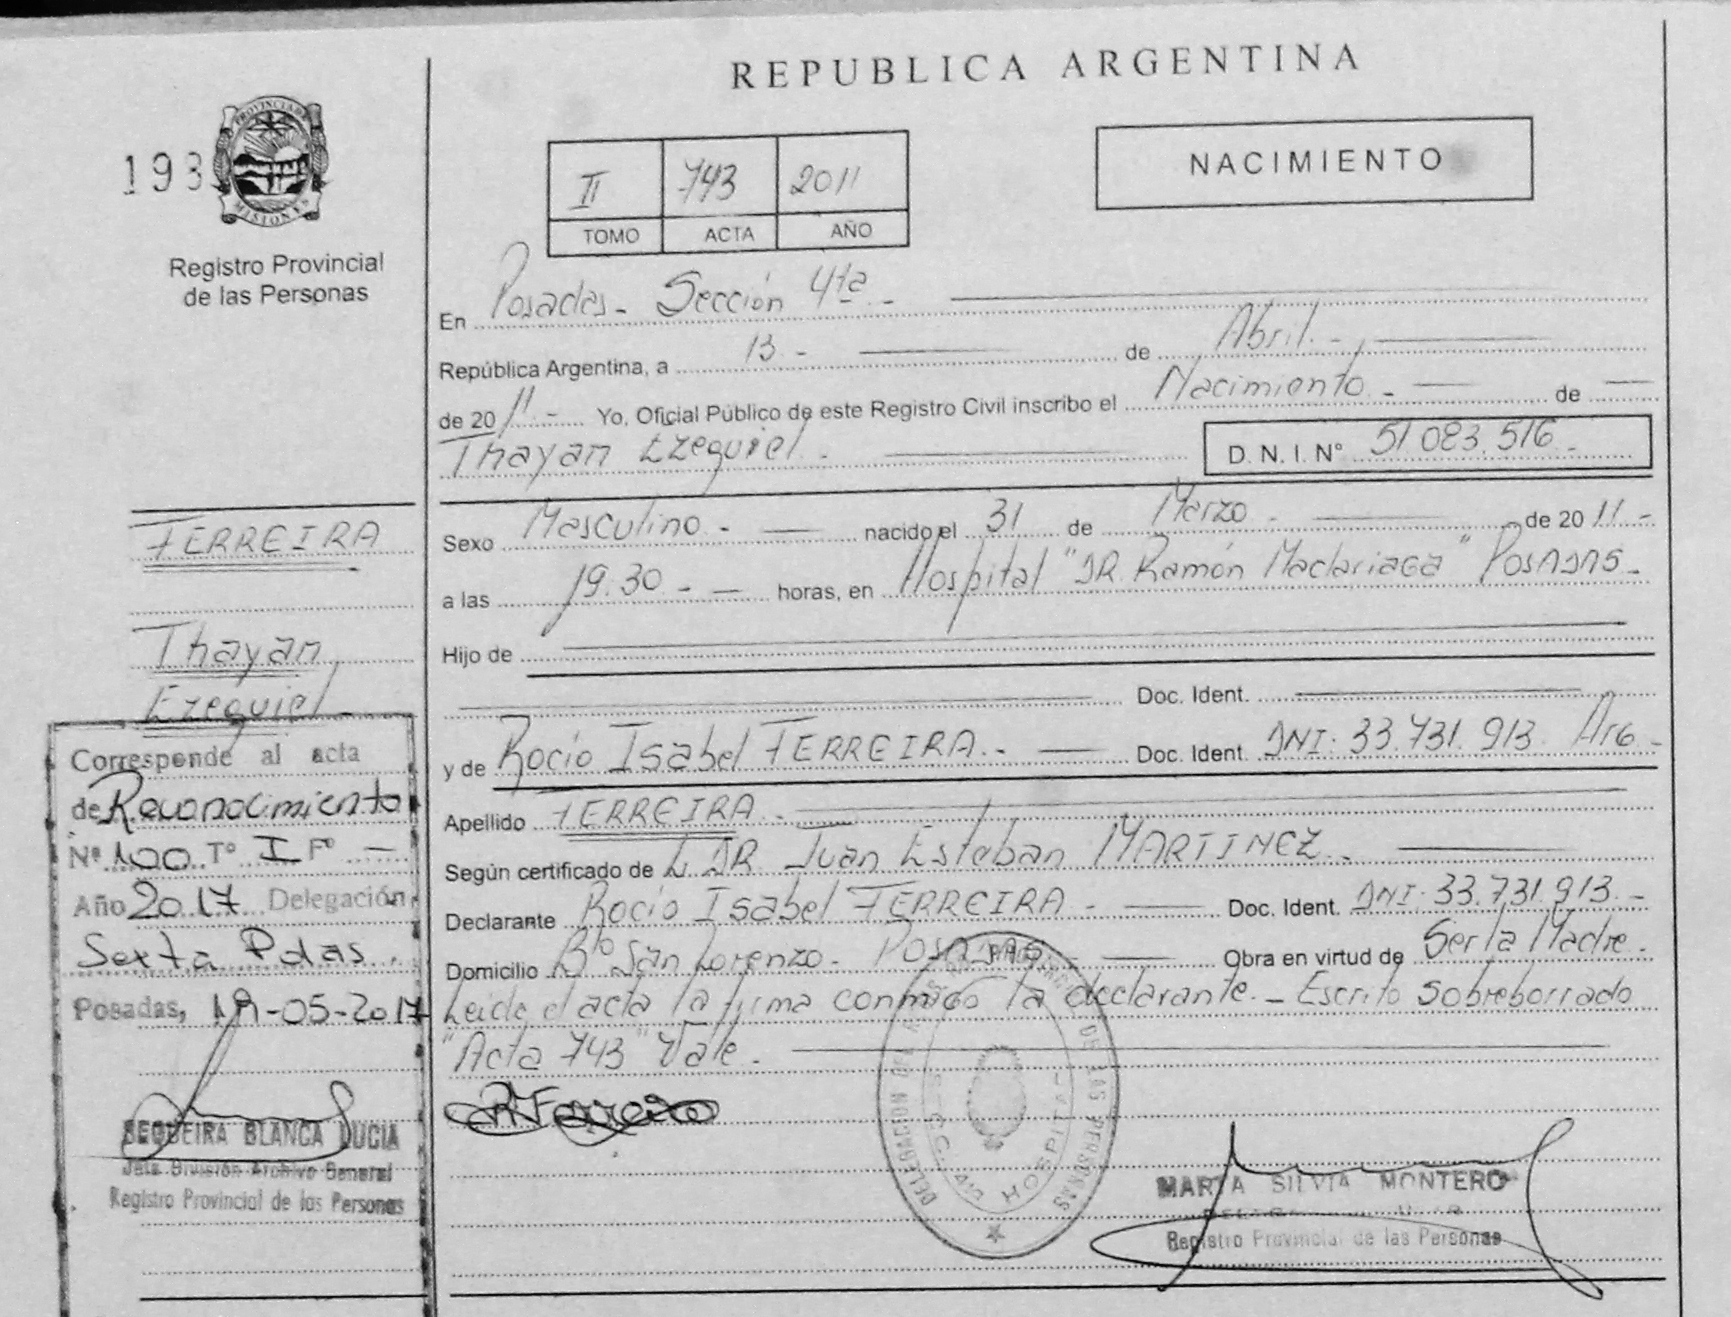 REPUBLICA ARGENTINA
193
PROVINCIA DE
MISIONES
Registro Provincial
de las Personas
II 743 2011
TOMO ACTA AÑO
NACIMIENTO
En Posadas - Sección 4ta -
República Argentina, a 13 - de Abril -
de 2011 - Yo, Oficial Público de este Registro Civil inscribo el Nacimiento - de
Thayan Ezequiel - D. N. I. N° 51.083.516 -
Sexo Masculino - nacido el 31 de Marzo - de 2011 -
a las 19.30 - horas, en Hospital "DR. Ramón Madariaga" POSADAS -
Hijo de
Doc. Ident.
y de Rocío Isabel FERREIRA - Doc. Ident. DNI: 33.731.913 Arg -
Apellido FERREIRA -
Según certificado de L. DR. Juan Esteban MARTINEZ -
Declarante Rocío Isabel FERREIRA - Doc. Ident. DNI: 33.731.913 -
Domicilio Bº San Lorenzo - POSADAS - Obra en virtud de Ser la Madre.
Leída el acta la firma conmigo la declarante. - Escrito sobreborrado
"Acta 743" Vale. -
R Ferreira
FERREIRA
Thayan
Ezequiel -
Corresponde al acta
de Reconocimiento
Nº 100 Tº I Fº -
Año 2017 Delegación
Sexta Pdas.
Posadas, 19-05-2017
SEQUEIRA BLANCA LUCIA
Jefa División Archivo General
Registro Provincial de las Personas
DE LAS PERSONAS
DELEGACION
HOSPITAL
MARTA SILVIA MONTERO
Registro Provincial de las Personas